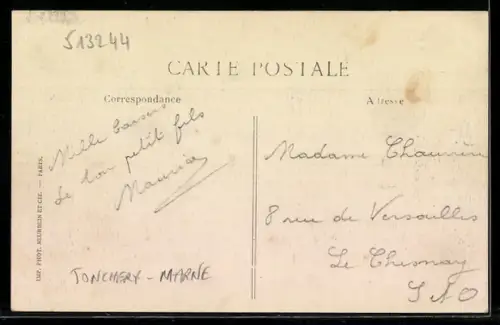 513244
CARTE POSTALE
Correspondance
Adresse
Mille baisers
de ton petit fils
Maurice
Madame
8 rue de Versailles
Le Chesnay
S & O
JONCHERY - MARNE
IMP. PHOT. NEURDEIN ET CIE. — PARIS.